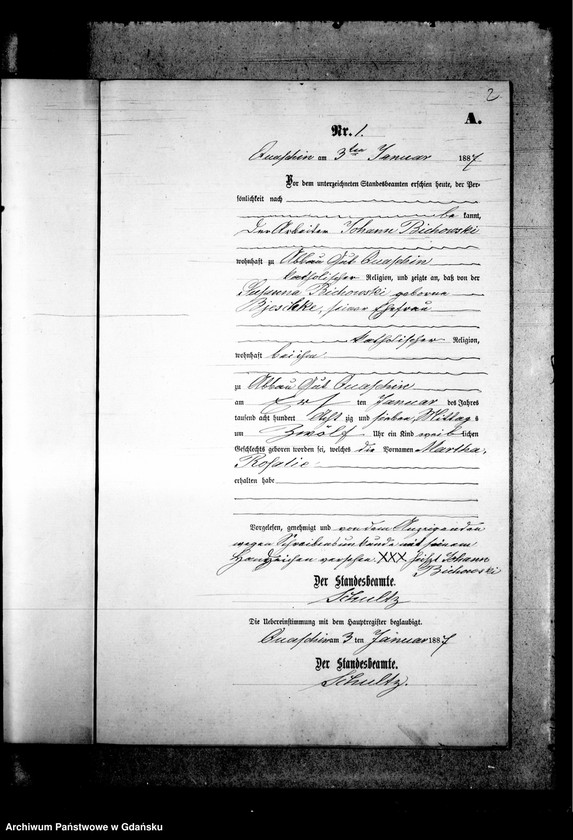 2
A.
Nr. 1.
Quaschin am 3ten Januar 1887
Vor dem unterzeichneten Standesbeamten erschien heute, der Per-
sönlichkeit nach
be kannt,
Der Arbeiter Johann Bichowski
wohnhaft zu Abbau Gut Quaschin
katholischer Religion, und zeigte an, daß von der
Susanna Bichowski geborne
Bjeschke, seiner Ehefrau
katholischer Religion,
wohnhaft bei ihm
zu Abbau Gut Quaschin
am ersten Januar des Jahres
tausend acht hundert Acht zig und sieben, Mittags
um Zwölf Uhr ein Kind weib lichen
Geschlechts geboren worden sei, welches die Vornamen Martha,
Rosalie
erhalten habe
Vorgelesen, genehmigt und von dem Anzeigenden
wegen Schreibensunkunde mit seinem
Handzeichen versehen. XXX heißt Johann
Bichowski
Der Standesbeamte.
Schultz
Die Uebereinstimmung mit dem Hauptregister beglaubigt.
Quaschin am 3 ten Januar 1887
Der Standesbeamte.
Schultz.
Archiwum Państwowe w Gdańsku